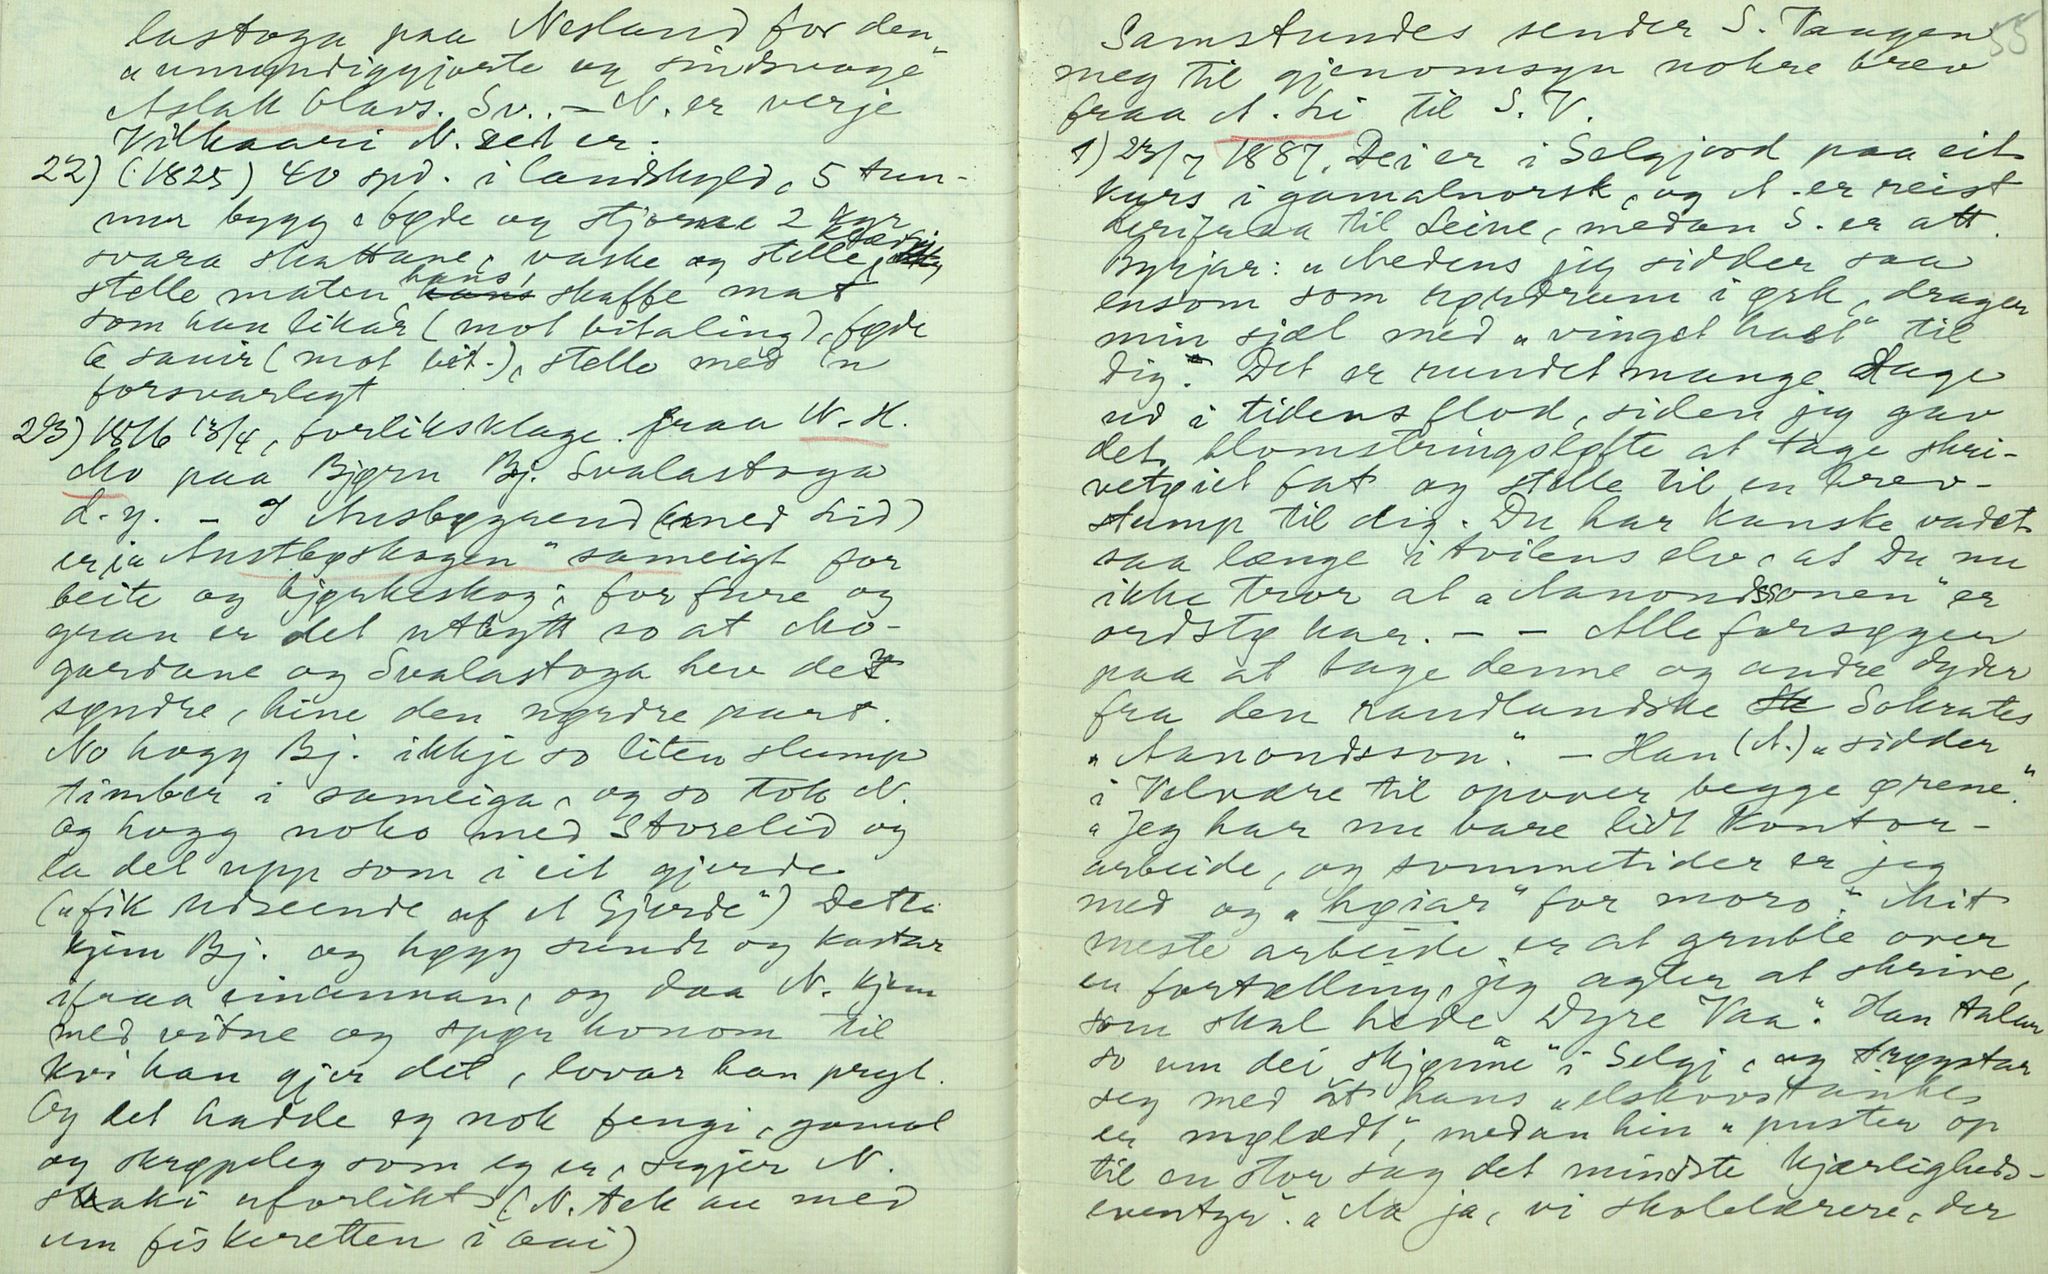 lastoga paa Nesland for den
„umyndiggjorte og sindsvage"
Aslak Olavs. Sv.. – N. er verje
Vilkaari N. set er:
22) (1825) 40 spd. i landskyld, 5 tun-
nur bygg, føde og stjorne 2 kyr
svara skattane, vaske og stelle klædi,
stelle maten hans, skaffe mat
som han likar (mot bitaling), føde
6 sauir (mot bit.), stelle med 'n
forsvarlegt
23) 1816 13/4, forliksklage fraa N. H.
Mo paa Bjørn Bj. Svalastoga
d. y. – I Ausbygrend (med Lid)
er ja „Austbøskogen" sameigt for
beite og bjørkeskog, for fure og
gran er det utbytt so at Mo-
gardane og Svalastoga hev den
søndre, hine den nørdre part.
No hogg Bj. ikkje so liten slump
timber i sameiga, og so tok N.
og hogg noko med Storelid og
la det upp som i eit gjerde
(„fik Udseende af et Gjerde") Dette
kjem Bj. og høgg sundt og kastar
ifraa einannan, og daa N. kjem
med vitne og spør honom til
kvi han gjer det, lovar han pryl.
Og det hadde eg nok fengi, gamal
og skrøpeleg som eg er, segjer N.
uforlikt. (N. tek au med
um fiskeretten i aai)
55
Samstundes sender S. Vaagen
meg til gjenomsyn nokre brev
fraa A. Li til S. V.
1) 23/7 1887. Dei er i Selgjord paa eit
kurs i gamalnorsk, og A. er reist
herifraa til Leine, medan S. er att.
Byrjar: „Medens jeg sidder saa
ensom som i ørk, drager
min sjæl med „vinget hast" til
dig". Det er rundet mange Dage
ud i tidens flod, siden jeg gav
det blomstringsløfte at tage skri-
vetøiet fat og stelle til en brev-
stump til dig. Du har kanske vadet
saa længe i tvilens elv, at Du nu
ikke tror at „Aanondssonen" er
ordstø kar. – – Alle forsøgen
paa at tage denne og andre dyder
fra den randlandske Sokrates
„Aanondsson". – Han (A.) „sidder
i Velvære til opover begge ørene".
„Jeg har nu bare lidt Kontor-
arbeide, og sommetider er jeg
med og „høiar" for moro". Mit
meste arbeide er at gruble over
en fortælling, jeg agter at skrive,
som skal hede „Dyre Vaa". Han talar
so um dei „skjønne" i Selgj, og trøystar
seg med at hans „elskovstanke
er mølædt", medan hin „puster op
til en stor sag det mindste Kjærligheds-
eventyr". „Aa ja, vi skolelærere, der